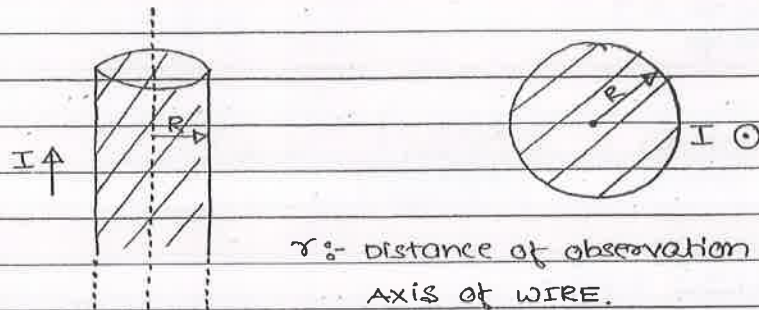 R
I ↑
R
I ⊙
r :- Distance of observation
AXIS of WIRE.